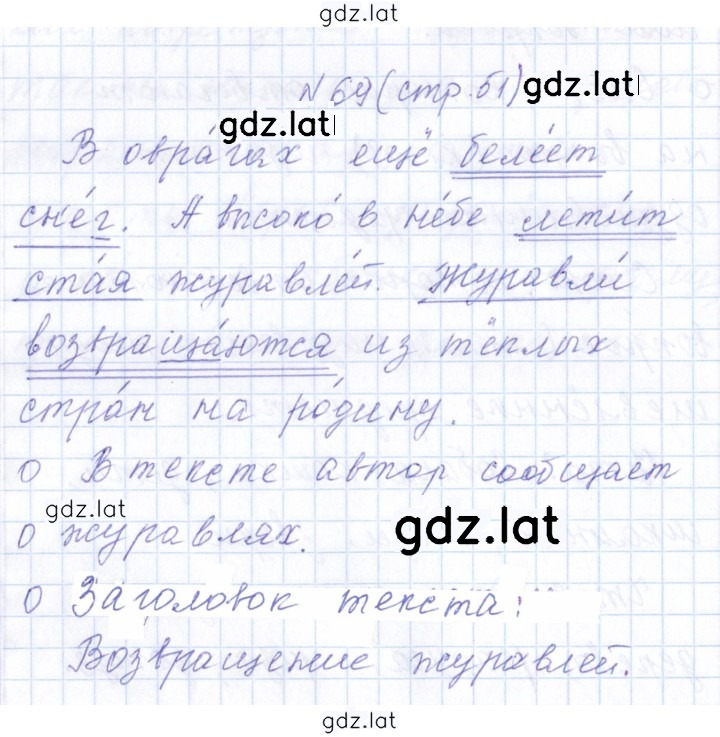 gdz.lat
N 69 (стр. 51) gdz.lat
gdz.lat
В овра́гах ещё беле́ет
сне́г. А высоко́ в не́бе лети́т
ста́я журавле́й. Журавли́
возвраща́ются из тёплых
стра́н на ро́дину.
О В тексте автор сообщает
gdz.lat
о журавлях.
gdz.lat
О Заголовок текста:
Возвращение журавлей.
gdz.lat